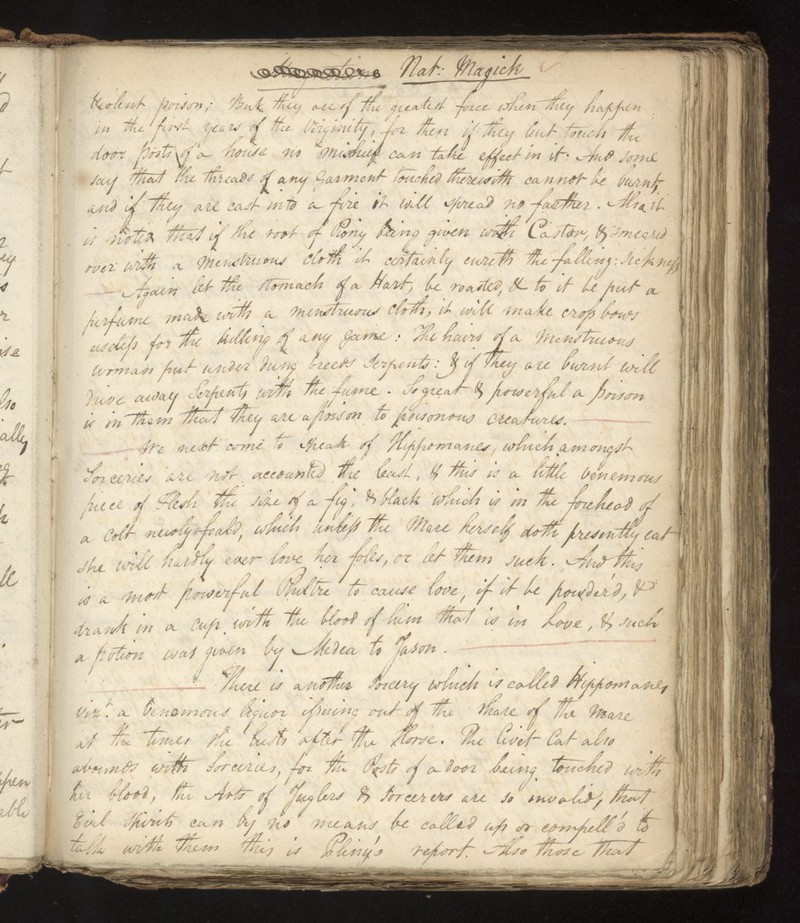 Nat: Magick
violent poison; But they are of the greatest force when they happen
in the first years of the Virginity, for then if they but touch the
door posts of a house no mischief can take effect in it. And some
say that the threads of any Garment touched therewith cannot be burnt,
and if they are cast into a fire it will spread no farther. Also it
is noted that if the root of Piony being given with Castor, & smeared
over with a Menstruous cloth it certainly cureth the falling-sickness
Again let the stomach of a Hart, be roasted, & to it be put a
perfume made with a menstruous cloth, it will make cross bows
useless for the killing of any Game: The hairs of a Menstruous
woman put under dung breeds Serpents: & if they are burnt will
drive away Serpents with the fume. So great & powerful a poison
is in them that they are a poison to poisonous creatures.
We next come to speak of Hippomanes, which amongst
Sorceries are not accounted the least, & this is a little venemous
piece of Flesh the size of a fig, & black which is in the forehead of
a Colt newly foald, which unless the Mare herself doth presently eat
she will hardly ever love her foles, or let them suck. And this
is a most powerful Philtre to cause love, if it be powder'd, &
drank in a cup with the blood of him that is in Love, & such
a potion was given by Medea to Jason.
There is another sorcery which is called Hippomanes,
vizt. a Venomous liquor issuing out of the share of the Mare
at the times she lusts after the Horse. The Civet Cat also
abounds with Sorceries, for the Posts of a door being touched with
her blood, the Arts of Juglers & Sorcerers are so invalid, that
Evil Spirits can by no means be called up or compell'd to
talk with them this is Pliny's report. Also those that